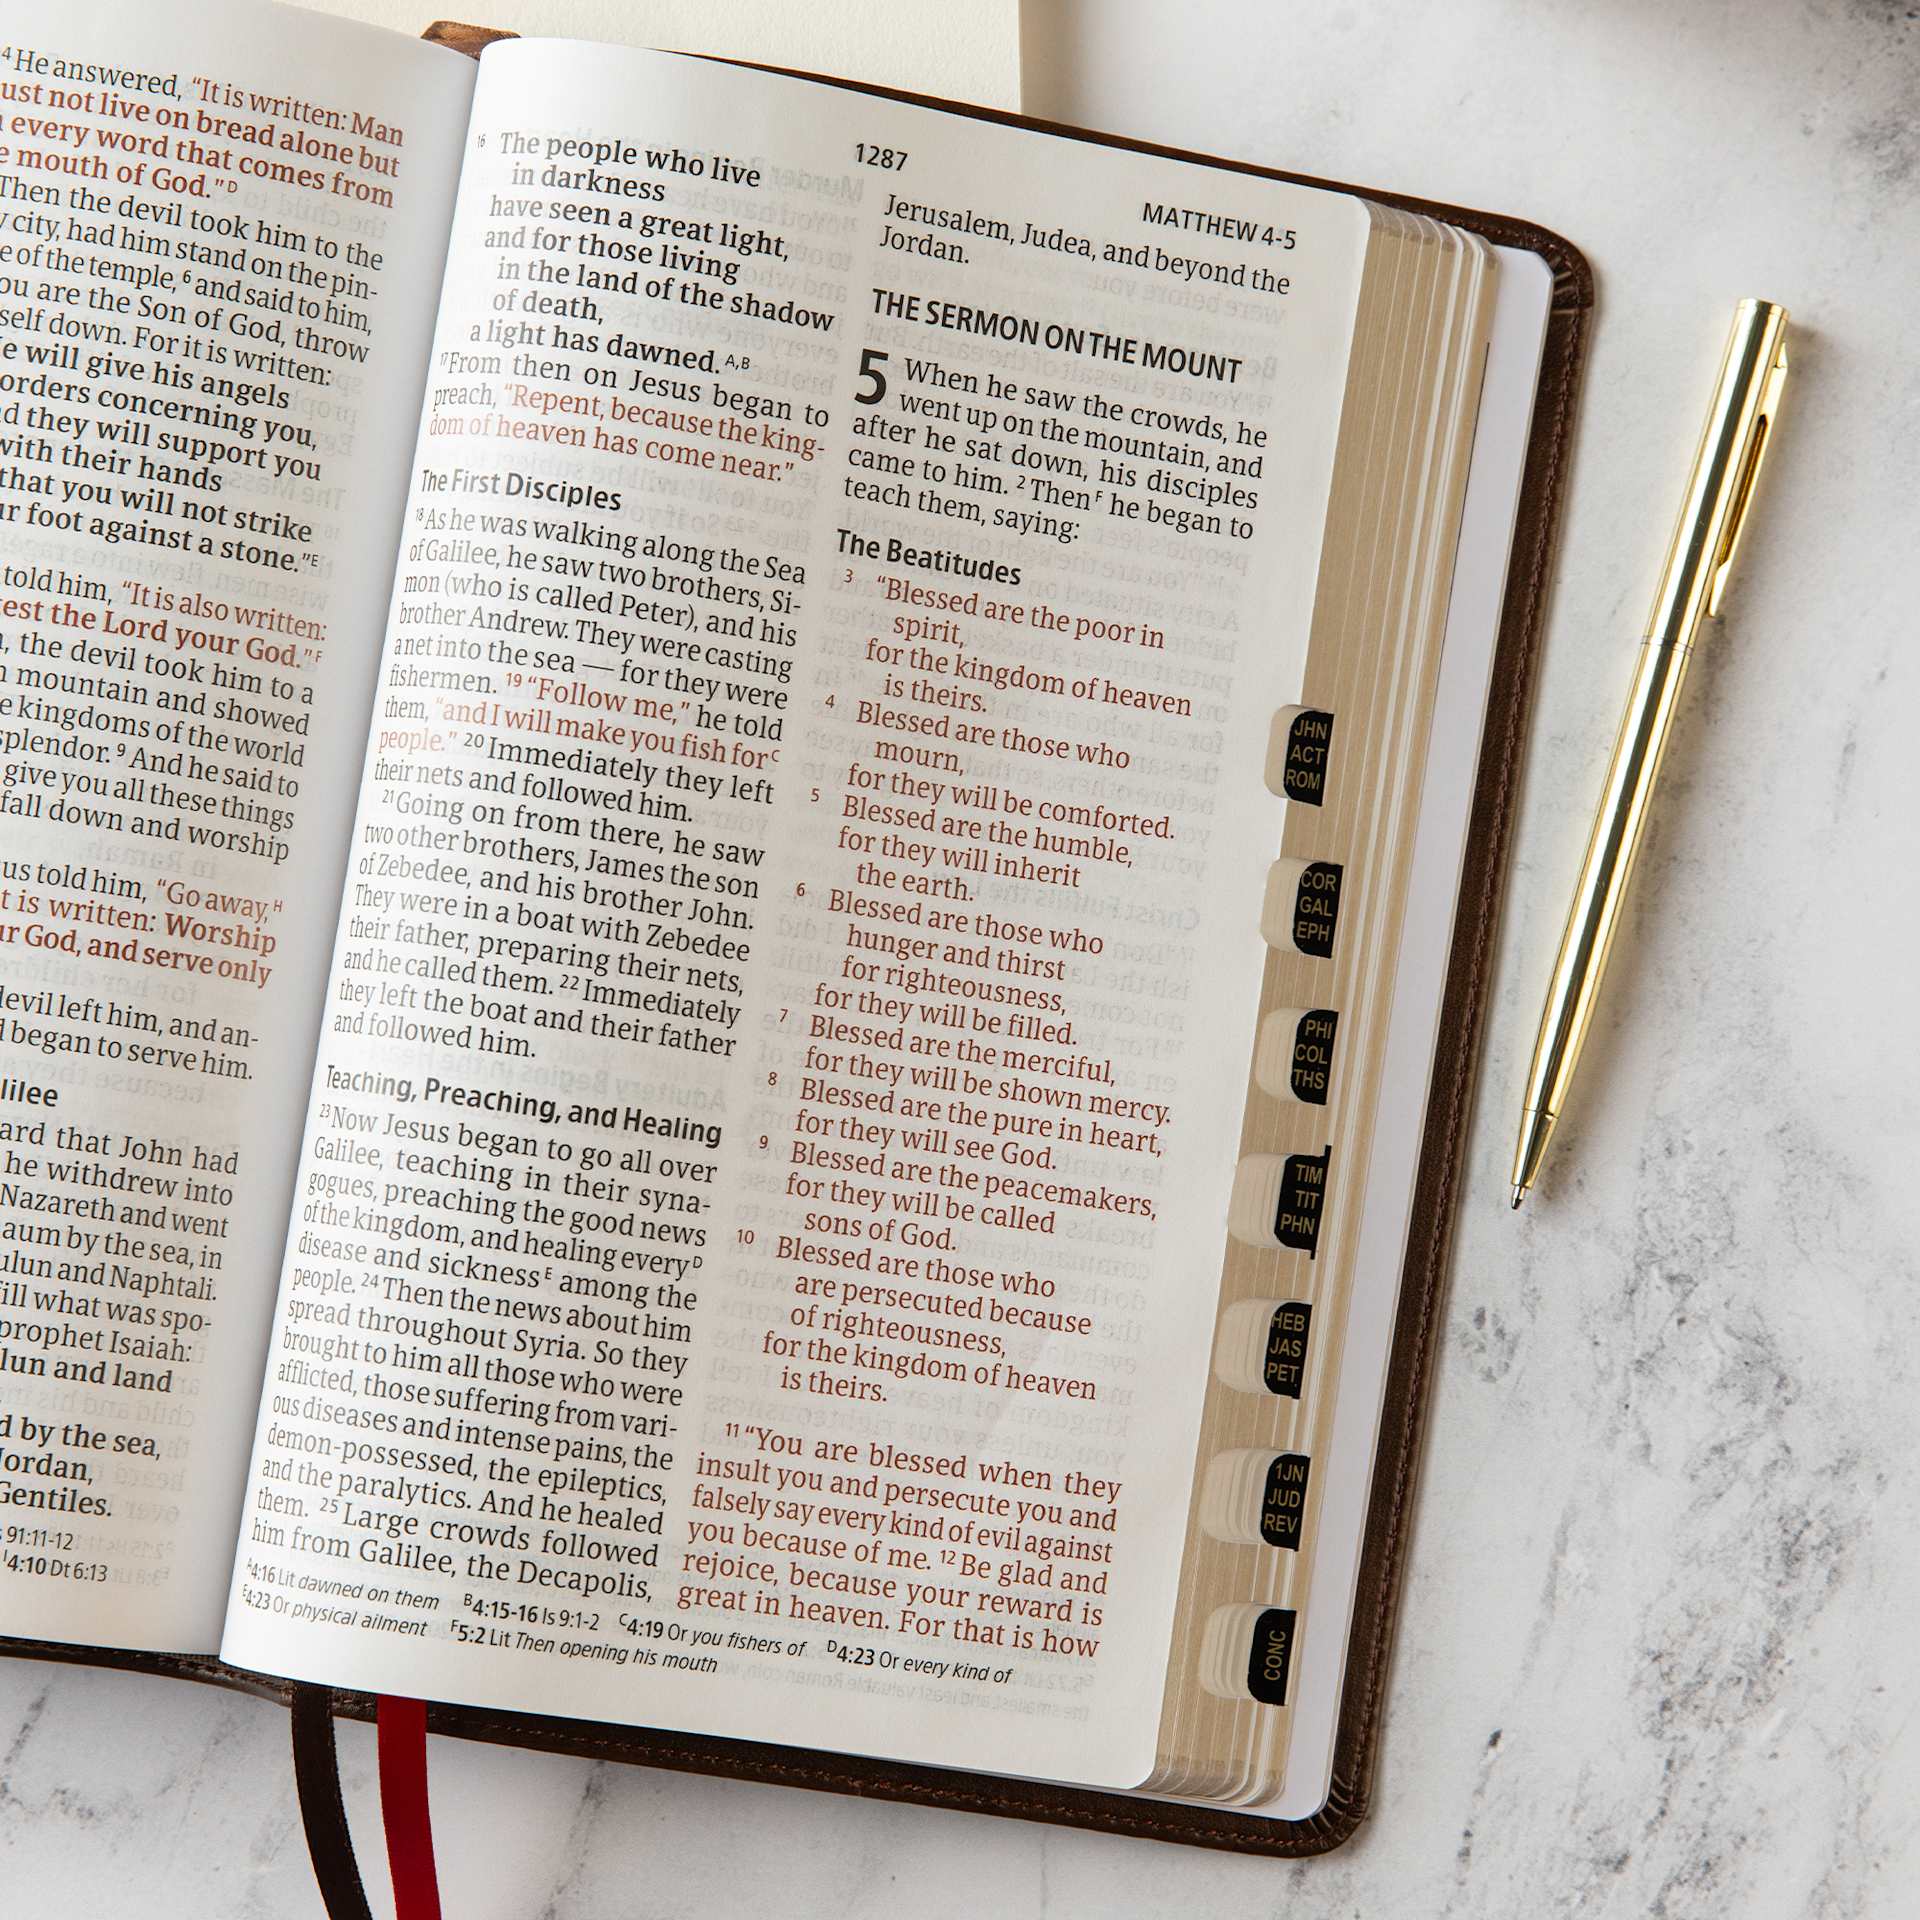 4 He answered, “It is written: Man
ust not live on bread alone but
every word that comes from
mouth of God.” D
Then the devil took him to the
city, had him stand on the pin-
e of the temple, 6 and said to him,
ou are the Son of God, throw
self down. For it is written:
He will give his angels
orders concerning you,
they will support you
with their hands
that you will not strike
ur foot against a stone.” E
told him, “It is also written:
test the Lord your God.” F
, the devil took him to a
mountain and showed
e kingdoms of the world
splendor. 9 And he said to
give you all these things
fall down and worship
us told him, “Go away, H
t is written: Worship
ur God, and serve only
devil left him, and an-
began to serve him.
lilee
ard that John had
he withdrew into
Nazareth and went
aum by the sea, in
ulun and Naphtali.
fill what was spo-
prophet Isaiah:
lun and land
d by the sea,
Jordan,
Gentiles.
91:11-12
I 4:10 Dt 6:13
1287
MATTHEW 4-5
16 The people who live
in darkness
have seen a great light,
and for those living
in the land of the shadow
of death,
a light has dawned. A,B
17 From then on Jesus began to
preach, “Repent, because the king-
dom of heaven has come near.”
The First Disciples
18 As he was walking along the Sea
of Galilee, he saw two brothers, Si-
mon (who is called Peter), and his
brother Andrew. They were casting
a net into the sea — for they were
fishermen. 19 “Follow me,” he told
them, “and I will make you fish for C
people.” 20 Immediately they left
their nets and followed him.
21 Going on from there, he saw
two other brothers, James the son
of Zebedee, and his brother John.
They were in a boat with Zebedee
their father, preparing their nets,
and he called them. 22 Immediately
they left the boat and their father
and followed him.
Teaching, Preaching, and Healing
23 Now Jesus began to go all over
Galilee, teaching in their syna-
gogues, preaching the good news
of the kingdom, and healing every D
disease and sickness E among the
people. 24 Then the news about him
spread throughout Syria. So they
brought to him all those who were
afflicted, those suffering from vari-
ous diseases and intense pains, the
demon-possessed, the epileptics,
and the paralytics. And he healed
them. 25 Large crowds followed
him from Galilee, the Decapolis,
Jerusalem, Judea, and beyond the
Jordan.
THE SERMON ON THE MOUNT
5 When he saw the crowds, he
went up on the mountain, and
after he sat down, his disciples
came to him. 2 Then F he began to
teach them, saying:
The Beatitudes
3 “Blessed are the poor in
spirit,
for the kingdom of heaven
is theirs.
4 Blessed are those who
mourn,
for they will be comforted.
5 Blessed are the humble,
for they will inherit
the earth.
6 Blessed are those who
hunger and thirst
for righteousness,
for they will be filled.
7 Blessed are the merciful,
for they will be shown mercy.
8 Blessed are the pure in heart,
for they will see God.
9 Blessed are the peacemakers,
for they will be called
sons of God.
10 Blessed are those who
are persecuted because
of righteousness,
for the kingdom of heaven
is theirs.
11 “You are blessed when they
insult you and persecute you and
falsely say every kind of evil against
you because of me. 12 Be glad and
rejoice, because your reward is
great in heaven. For that is how
A 4:16 Lit dawned on them B 4:15-16 Is 9:1-2 C 4:19 Or you fishers of D 4:23 Or every kind of
E 4:23 Or physical ailment F 5:2 Lit Then opening his mouth
JHN
ACT
ROM
COR
GAL
EPH
PHI
COL
THS
TIM
TIT
PHN
HEB
JAS
PET
1JN
JUD
REV
CONC